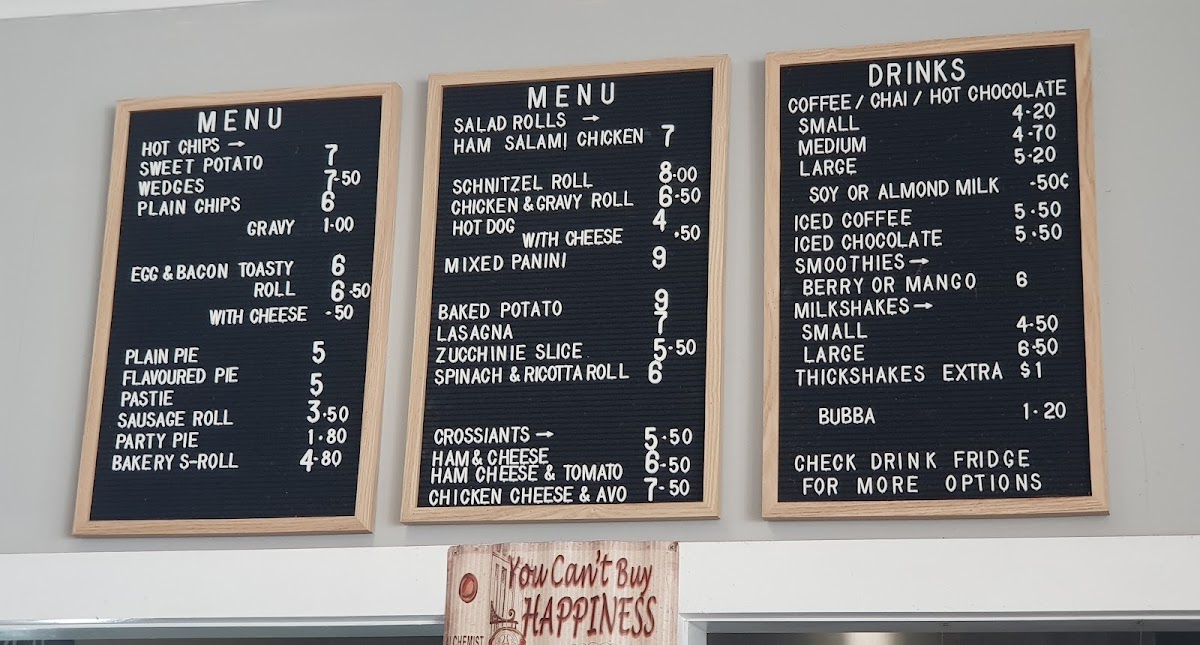 MENU
HOT CHIPS →
SWEET POTATO 7
WEDGES 7-50
PLAIN CHIPS 6
GRAVY 1-00
EGG & BACON TOASTY 6
ROLL 6-50
WITH CHEESE -50
PLAIN PIE 5
FLAVOURED PIE
PASTIE 5
SAUSAGE ROLL 3.50
PARTY PIE 1.80
BAKERY S-ROLL 4-80
MENU
SALAD ROLLS →
HAM SALAMI CHICKEN 7
SCHNITZEL ROLL 8-00
CHICKEN & GRAVY ROLL 6-50
HOT DOG 4
WITH CHEESE .50
MIXED PANINI 9
BAKED POTATO 9
LASAGNA 7
ZUCCHINIE SLICE 5-50
SPINACH & RICOTTA ROLL 6
CROSSIANTS → 5.50
HAM & CHEESE
HAM CHEESE & TOMATO 6-50
CHICKEN CHEESE & AVO 7-50
DRINKS
COFFEE / CHAI / HOT CHOCOLATE
SMALL 4-20
MEDIUM 4-70
LARGE 5-20
SOY OR ALMOND MILK -50¢
ICED COFFEE 5.50
ICED CHOCOLATE 5.50
SMOOTHIES →
BERRY OR MANGO 6
MILKSHAKES →
SMALL 4-50
LARGE 6-50
THICKSHAKES EXTRA $1
BUBBA 1-20
CHECK DRINK FRIDGE
FOR MORE OPTIONS
You Can't Buy
HAPPINESS